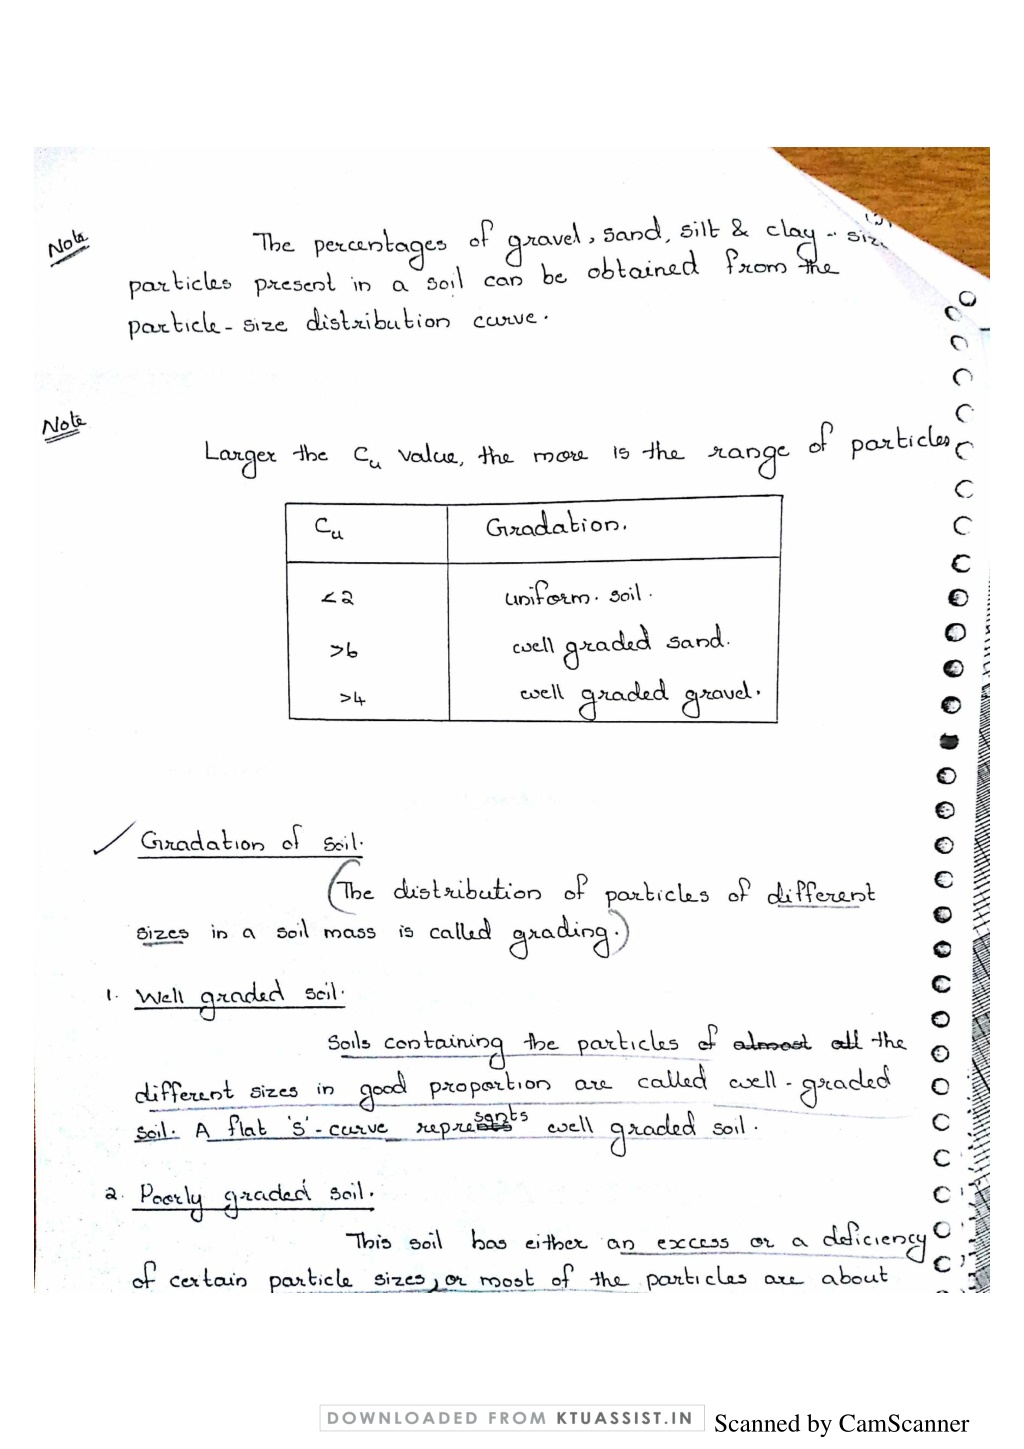 Note
The percentages of gravel, sand, silt & clay - size
particles present in a soil can be obtained from the
particle - size distribution curve.
Note
Larger the Cu value, the more is the range of particles
Cu Gradation.
<2 uniform. soil.
>6 well graded sand.
>4 well graded gravel.
Gradation of soil.
(The distribution of particles of different
sizes in a soil mass is called grading.)
1. Well graded soil.
Soils containing the particles of almost all the
different sizes in good proportion are called well - graded
soil. A flat 's' - curve represents well graded soil.
2. Poorly graded soil.
This soil has either an excess or a deficiency
of certain particle sizes, or most of the particles are about
DOWNLOADED FROM KTUASSIST.IN
Scanned by CamScanner